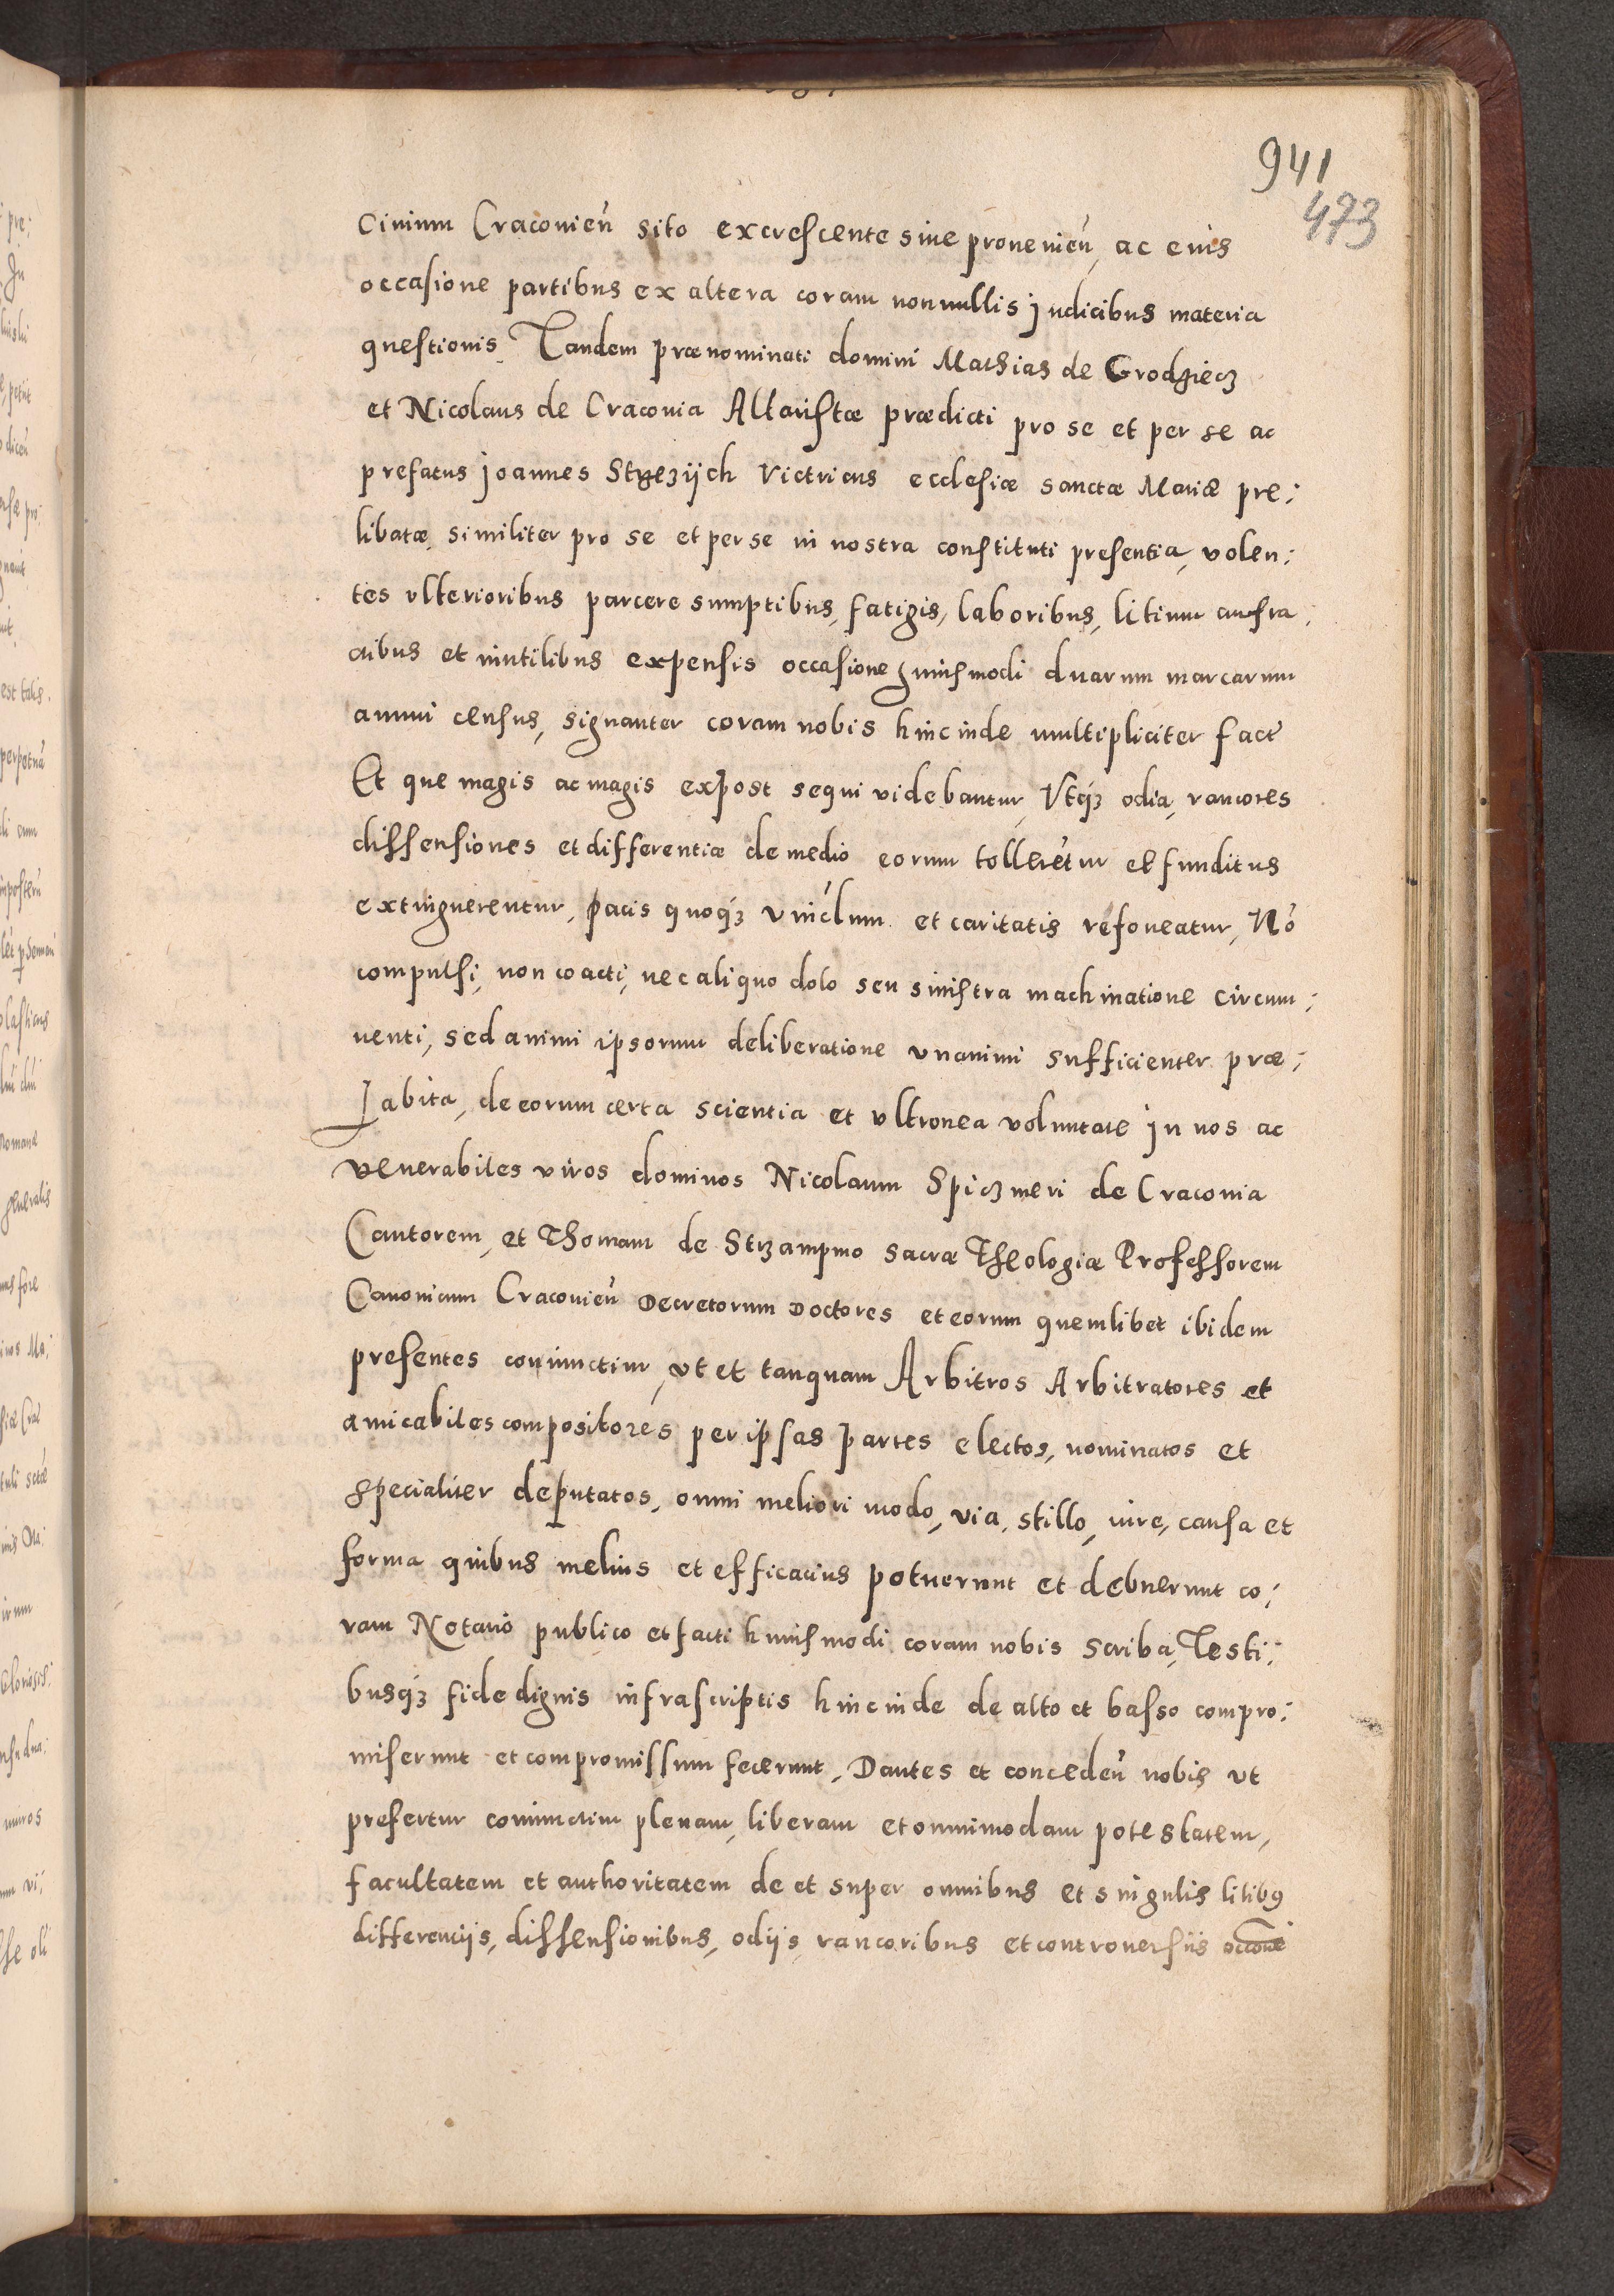 941
473
Ciuium Cracouień sito excrescente siue prouenień, ac eius
occasione partibus ex altera coram nonnullis Judicibus materia
questionis. Tandem prænominati domini Mathias de Grodziecz
et Nicolaus de Cracouia Altaristæ prædicti pro se et per se ac
prefatus Joannes Strzezijch Victricus ecclesiæ sanctæ Mariæ pre;
libatæ, similiter pro se et per se in nostra constituti presentia, volen;
tes vlterioribus parcere sumptibus, fatigis, laboribus, litium anfra,
ctibus et inutilibus expensis occasione huiusmodi duarum marcarum
annui census, signanter coram nobis hincinde multipliciter fact̃
Et que magis ac magis expost sequi videbantur, Vtq́ꝫ odia, rancores
dissensiones et differentiæ de medio eorum tollerẽtur et funditus
extinguerentur, pacis quoq́ꝫ vinc̓lum et caritatis refoueatur, Nõ
compulsi, non coacti, nec aliquo dolo seu sinistra machinatione circum;
uenti, sed animi ipsorum deliberatione vnanimi sufficienter præ;
habita, de eorum certa scientia et vltronea voluntate in nos ac
venerabiles viros dominos Nicolaum Spiczmeri de Cracouia
Cantorem, et Thomam de Strzampino sacræ Theologiæ Professorem
Canonicum Cracouień Decretorum Doctores et eorum quemlibet ibidem
presentes coniunctim, vt et tanquam Arbitros Arbitratores et
amicabiles compositores per ipsas partes electos, nominatos et
specialiter deputatos, omni meliori modo, via, stillo, iure, causa et
forma quibus melius et efficacius potuerunt et debuerunt co;
ram Notario publico et facti huiusmodi coram nobis scriba, Testi;
busq́ꝫ fide dignis infrascriptis hincinde de alto et basso compro;
miserunt et compromissum fecerunt, Dantes et concedeń nobis vt
prefertur coniunctim plenam, liberam et omnimodam potestatem,
facultatem et authoritatem de et super omnibus et singulis litibꝰ
differencijs, dissensionibus, odijs rancoribus et controuersiis occõne